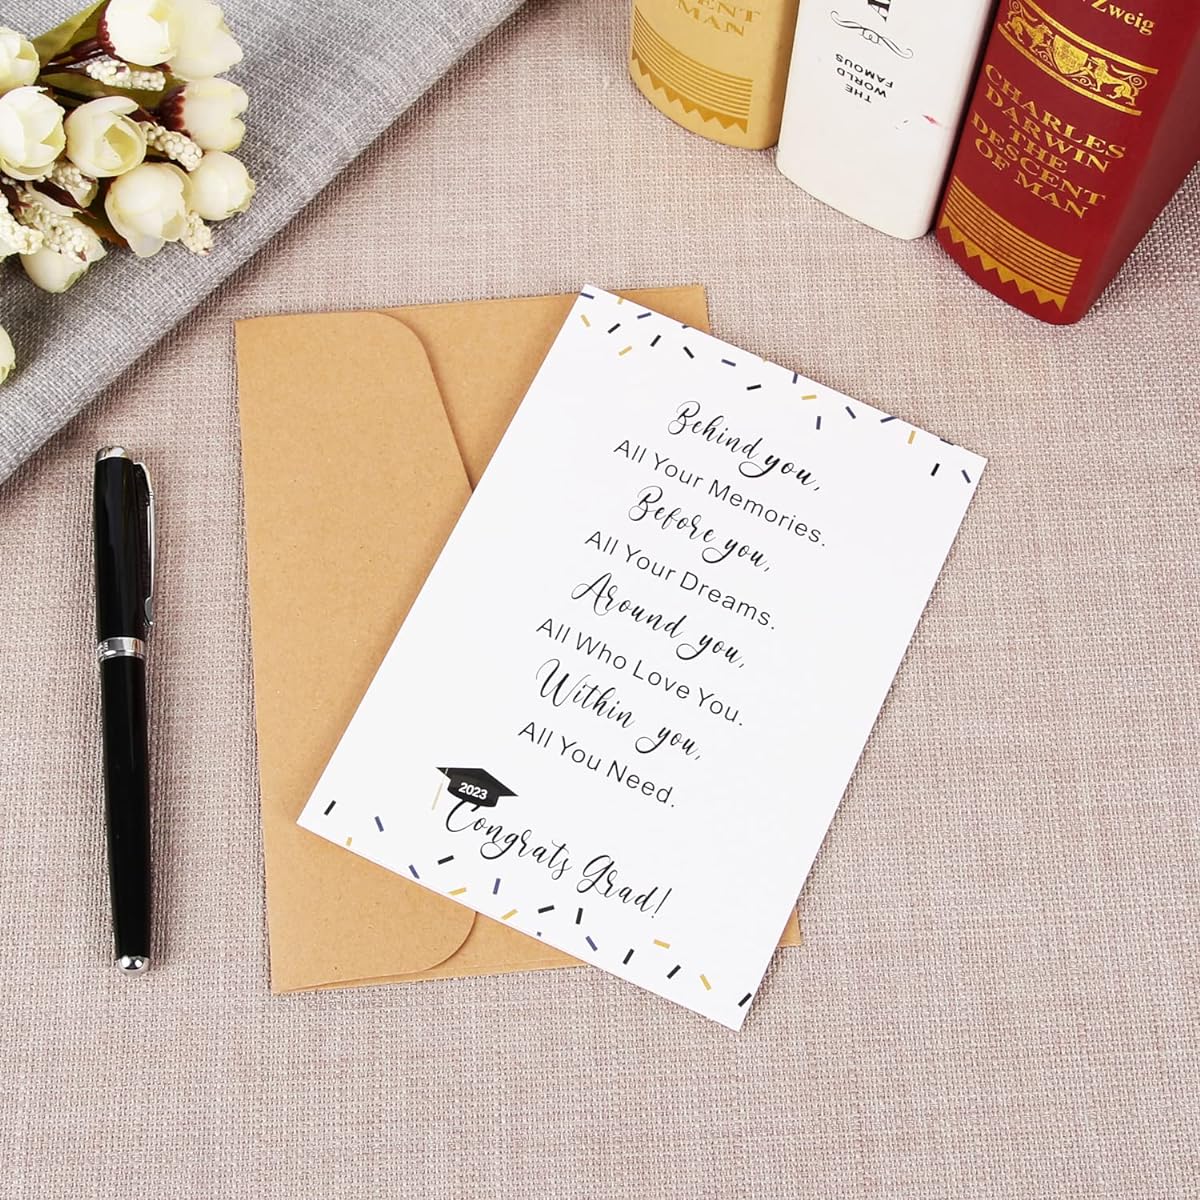 ENT
MAN
A
THE
WORLD
FAMOUS
Zweig
CHARLES
DARWIN
THE
DESCENT
OF MAN
Behind you,
All Your Memories.
Before you,
All Your Dreams.
Around you,
All Who Love You.
Within you,
All You Need.
2023
Congrats Grad!